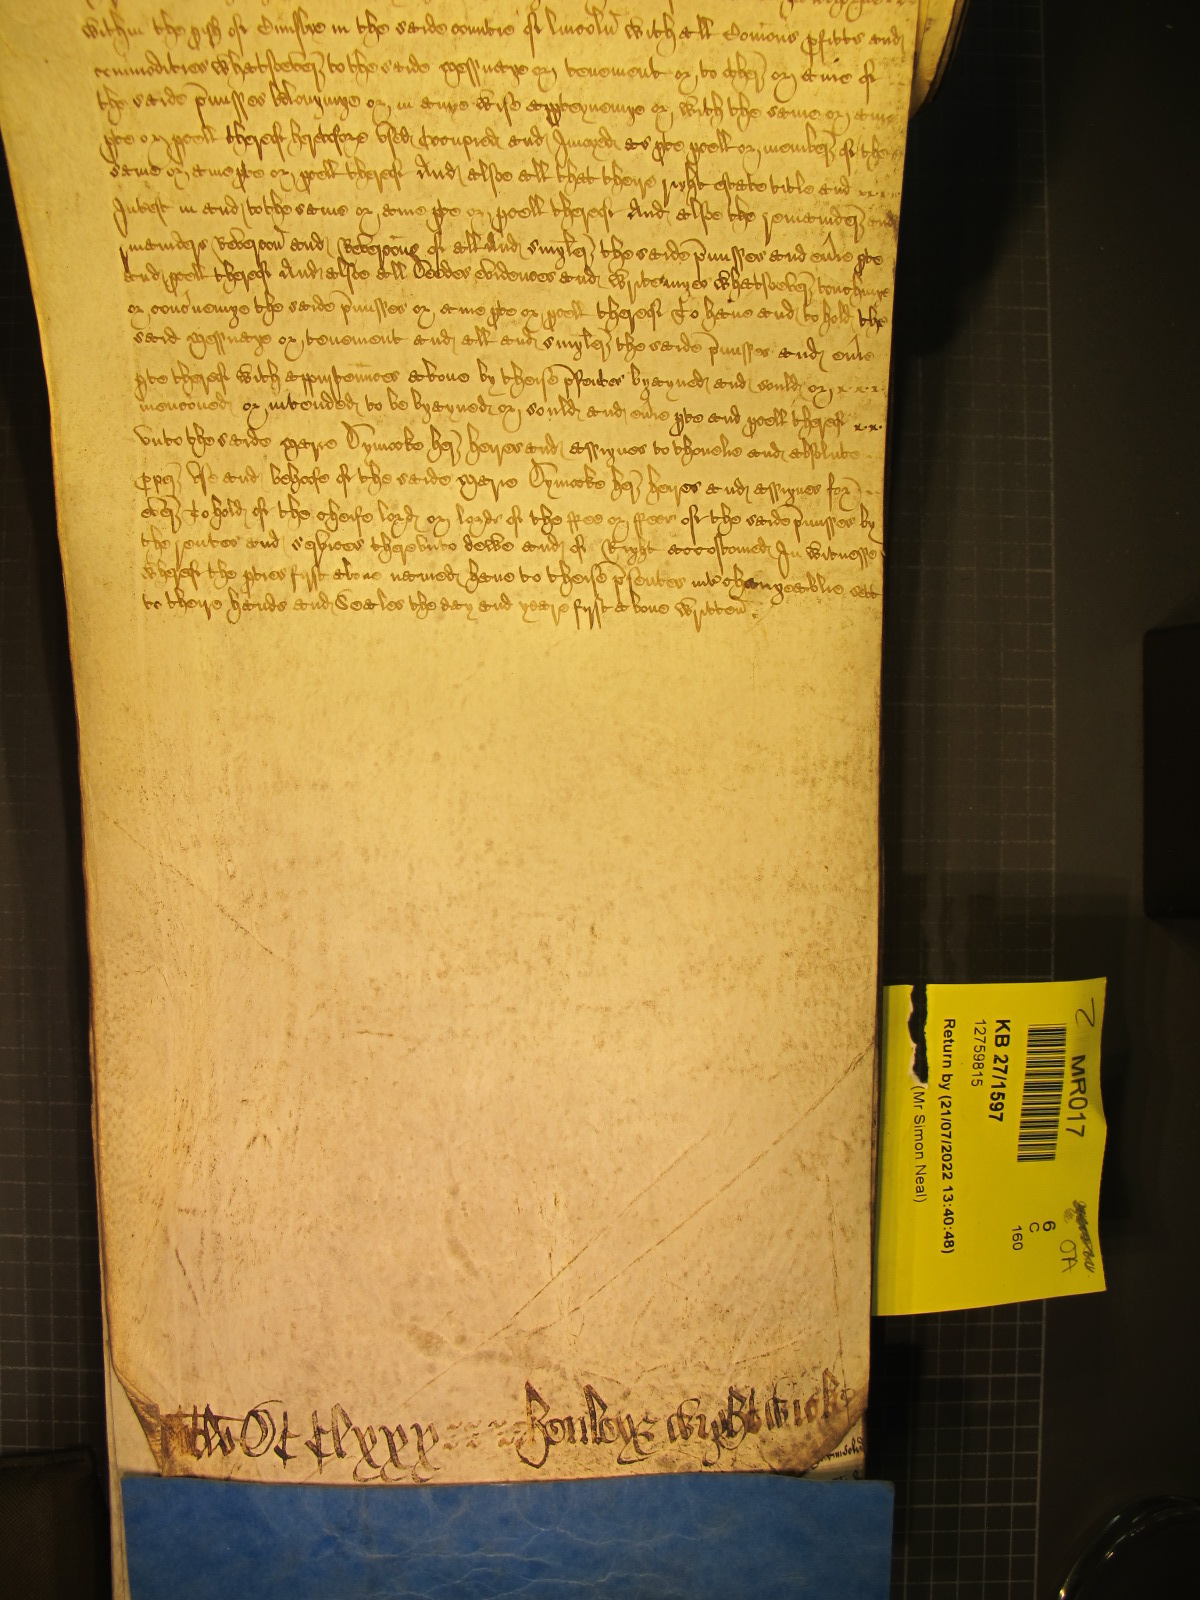 within the pish of Cunisbie in the saide countie of lincoln with all Comons pfitts and
commodities whatsoever to the saide messuage or tenement or to other or anie of
the saide pmisses belonginge or in anye wise apperteyneinge or with the same or anie
pte or pcell thereof heretofore vsed Occupied and Inioyed as pte pcell or member of the
same or anie pte or pcell thereof And alsoe all that theire right estate title and
Intrest in and to the same or anie pte or pcell thereof And alsoe the remainder and
rmainders Revercon and Revercons of all and singler the saide pmisses and eulie pte
and pcell thereof And alsoe all Deedes evidences and writeinges whatsoever touchinge
or concerneinge the saide pmisses or anie pte or pcell thereof To haue and to hold the
said messuage or tenement and all and singler the saide pmisses and eulie
pte thereof with appurtennces aboue by theise psentes bargyned and sould or
mencioned or intended to be bargyned or sould and eulie pte and pcell thereof
vnto the saide Marie Dymocke her heires and assignes to thonelie and absolute
pper vse and behoofe of the saide Marie Dymocke her heires and assignes for
ever To hold of the cheife lord or lords of the ffee or ffees of the saide pmisses by
the rentes and services therevnto dewe and of Right accostomed In witnesse
whereof the pties first aboue named haue to theise psentes interchangeablie sett
to theire hands and Seales the day and yeare first aboue written
MR017
KB 27/1597
12759815
Return by (21/07/2022 13:40:48)
(Mr Simon Neal)
6
C
160
2
OA